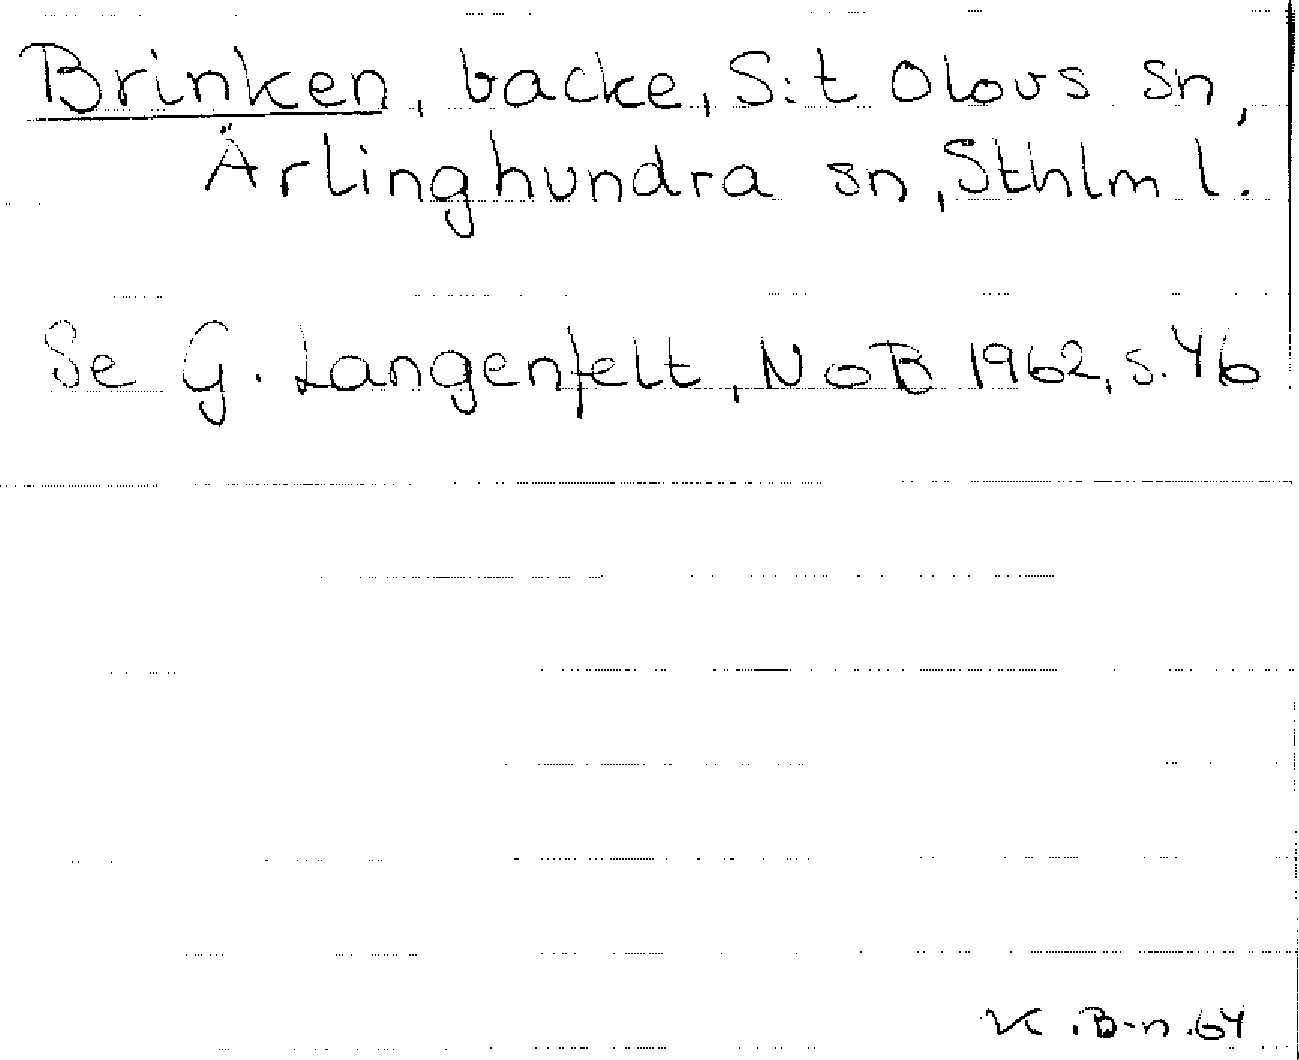 Brinken, backe, S:t Olovs sn,
Ärlinghundra sn, Sthlm l.
Se G. Langenfelt, NoB 1962, s. 46
K.B-n.64